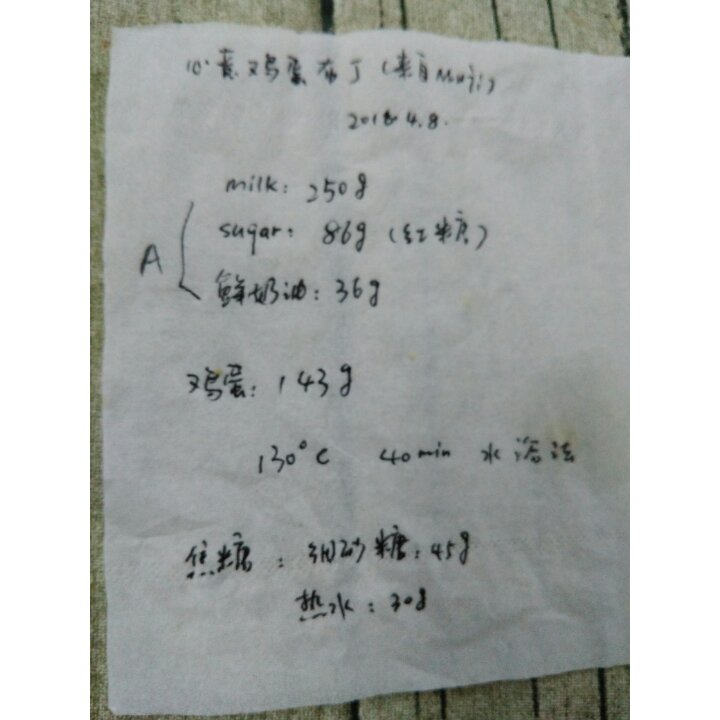 心意鸡蛋布丁(来自Muji)
2018 4.8.
milk: 250g
A
sugar: 86g (红糖)
鲜奶油: 36g
鸡蛋: 143g
130°C 40min 水浴法
焦糖: 细砂糖: 45g
热水: 30g